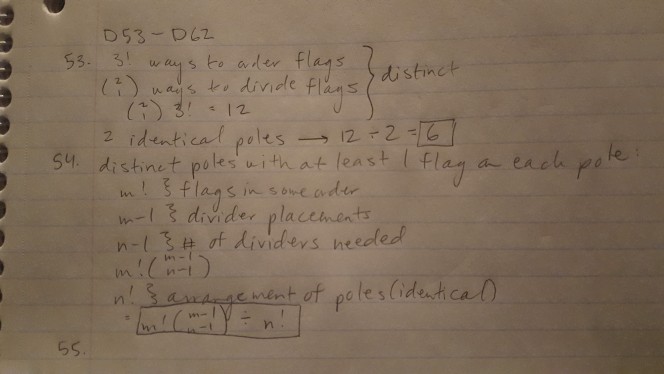 D53-D62
53. 3! ways to order flags
(2 1) ways to divide flags } distinct
(2 1) 3! = 12
2 identical poles → 12 ÷ 2 = 6
54. distinct poles with at least 1 flag on each pole:
m! } flags in some order
m-1 } divider placements
n-1 } # of dividers needed
m! (m-1 n-1)
n! } arrangement of poles (identical)
= m! (m-1 n-1) ÷ n!
55.